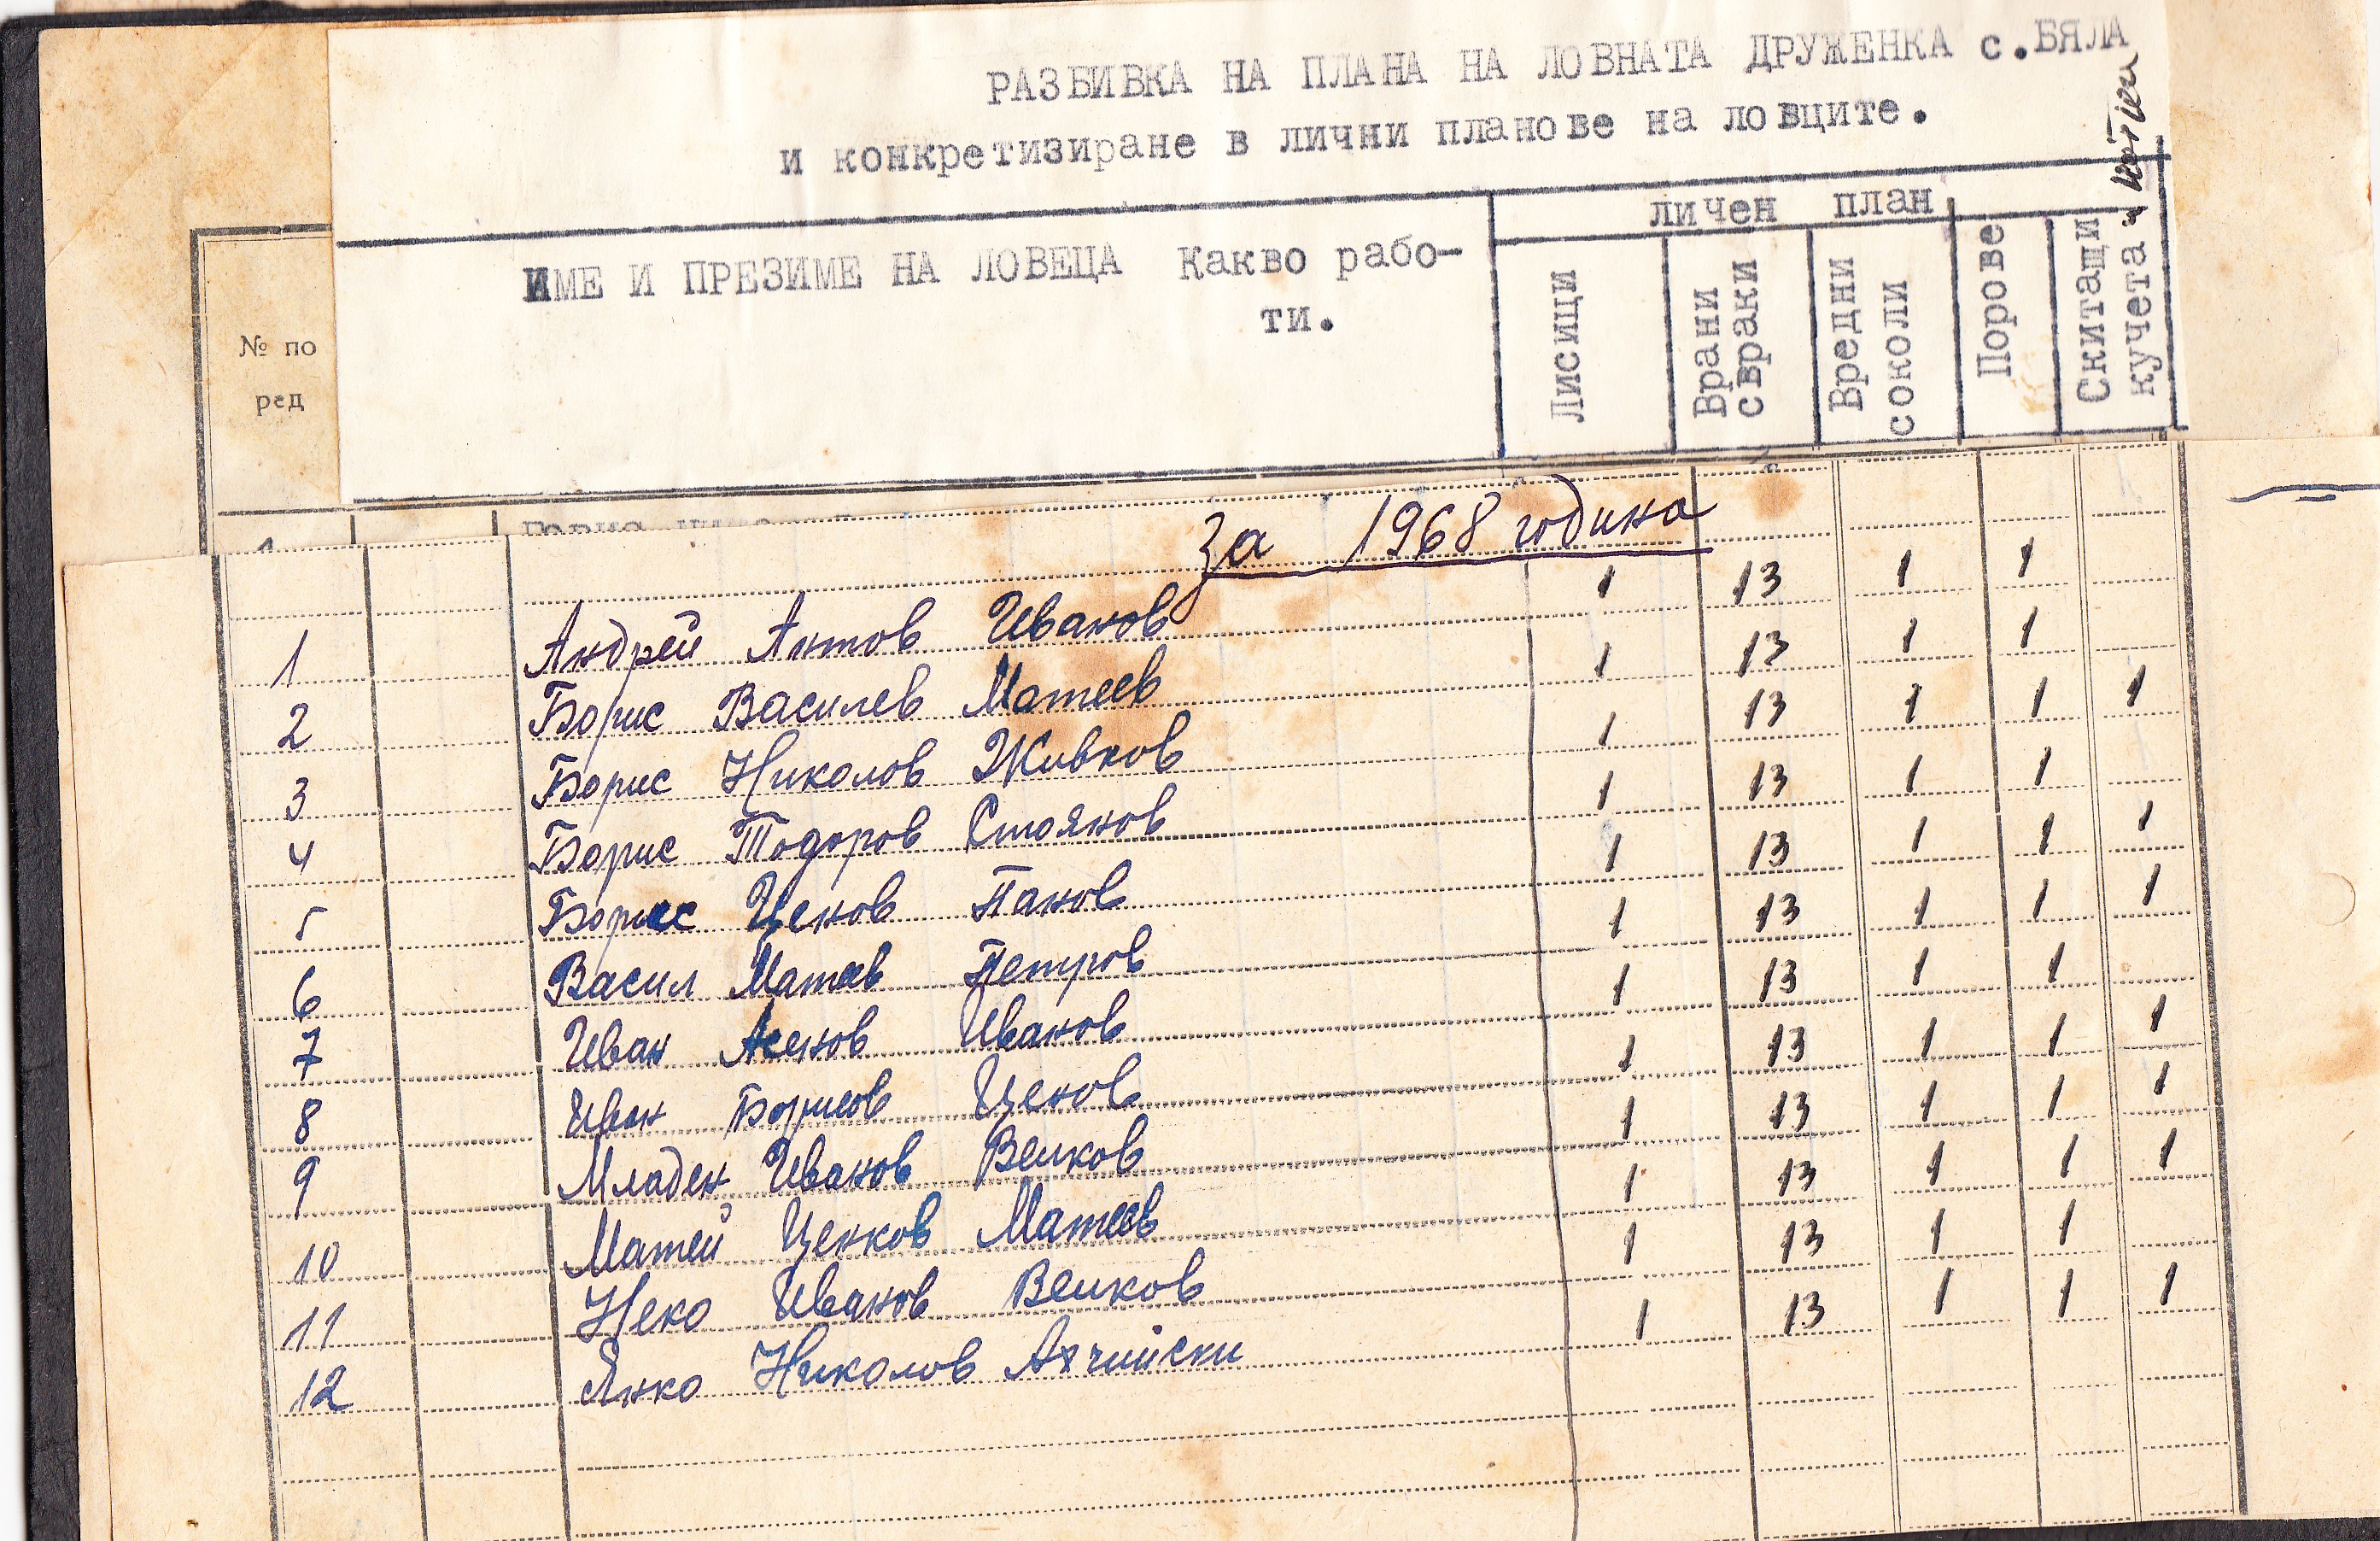 РАЗБИВКА НА ПЛАНА НА ЛОВНАТА ДРУЖЕНКА с.БЯЛА
и конкретизиране в лични планове на ловците.
личен план
№ по ред
ИМЕ И ПРЕЗИМЕ НА ЛОВЕЦА Какво рабо-
ти.
Лисици
Врани свраки
Вредни соколи
Порове
Скитащи кучета и котки
За 1968 година
1 Андрей Антов Иванов 1 13 1 1
2 Борис Василев Матеев 1 13 1 1
3 Борис Николов Живков 1 13 1 1 1
4 Борис Тодоров Стоянов 1 13 1 1
5 Борис Ценов Панов 1 13 1 1 1
6 Васил Матев Петров 1 13 1 1 1
7 Иван Асенов Иванов 1 13 1 1
8 Иван Борисов Ценов 1 13 1 1 1
9 Младен Иванов Велков 1 13 1 1 1
10 Матей Ценков Матеев 1 13 1 1 1
11 Неко Иванов Велков 1 13 1 1
12 Янко Николов 1 13 1 1 1